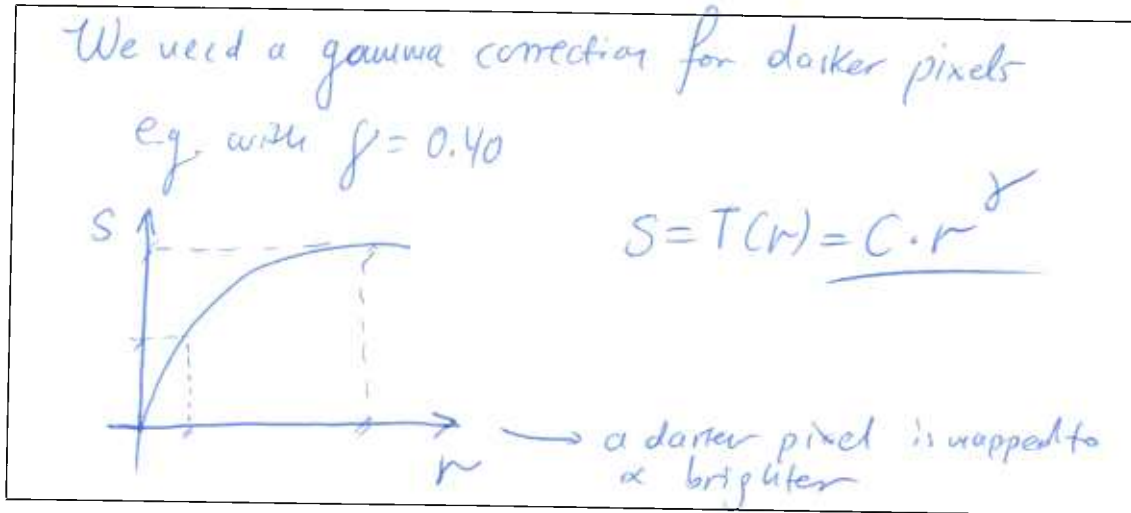 We need a gamma correction for darker pixels
e.g. with γ = 0.40
S
S = T(r) = C · r^γ
r
→ a darker pixel is mapped to
a brighter